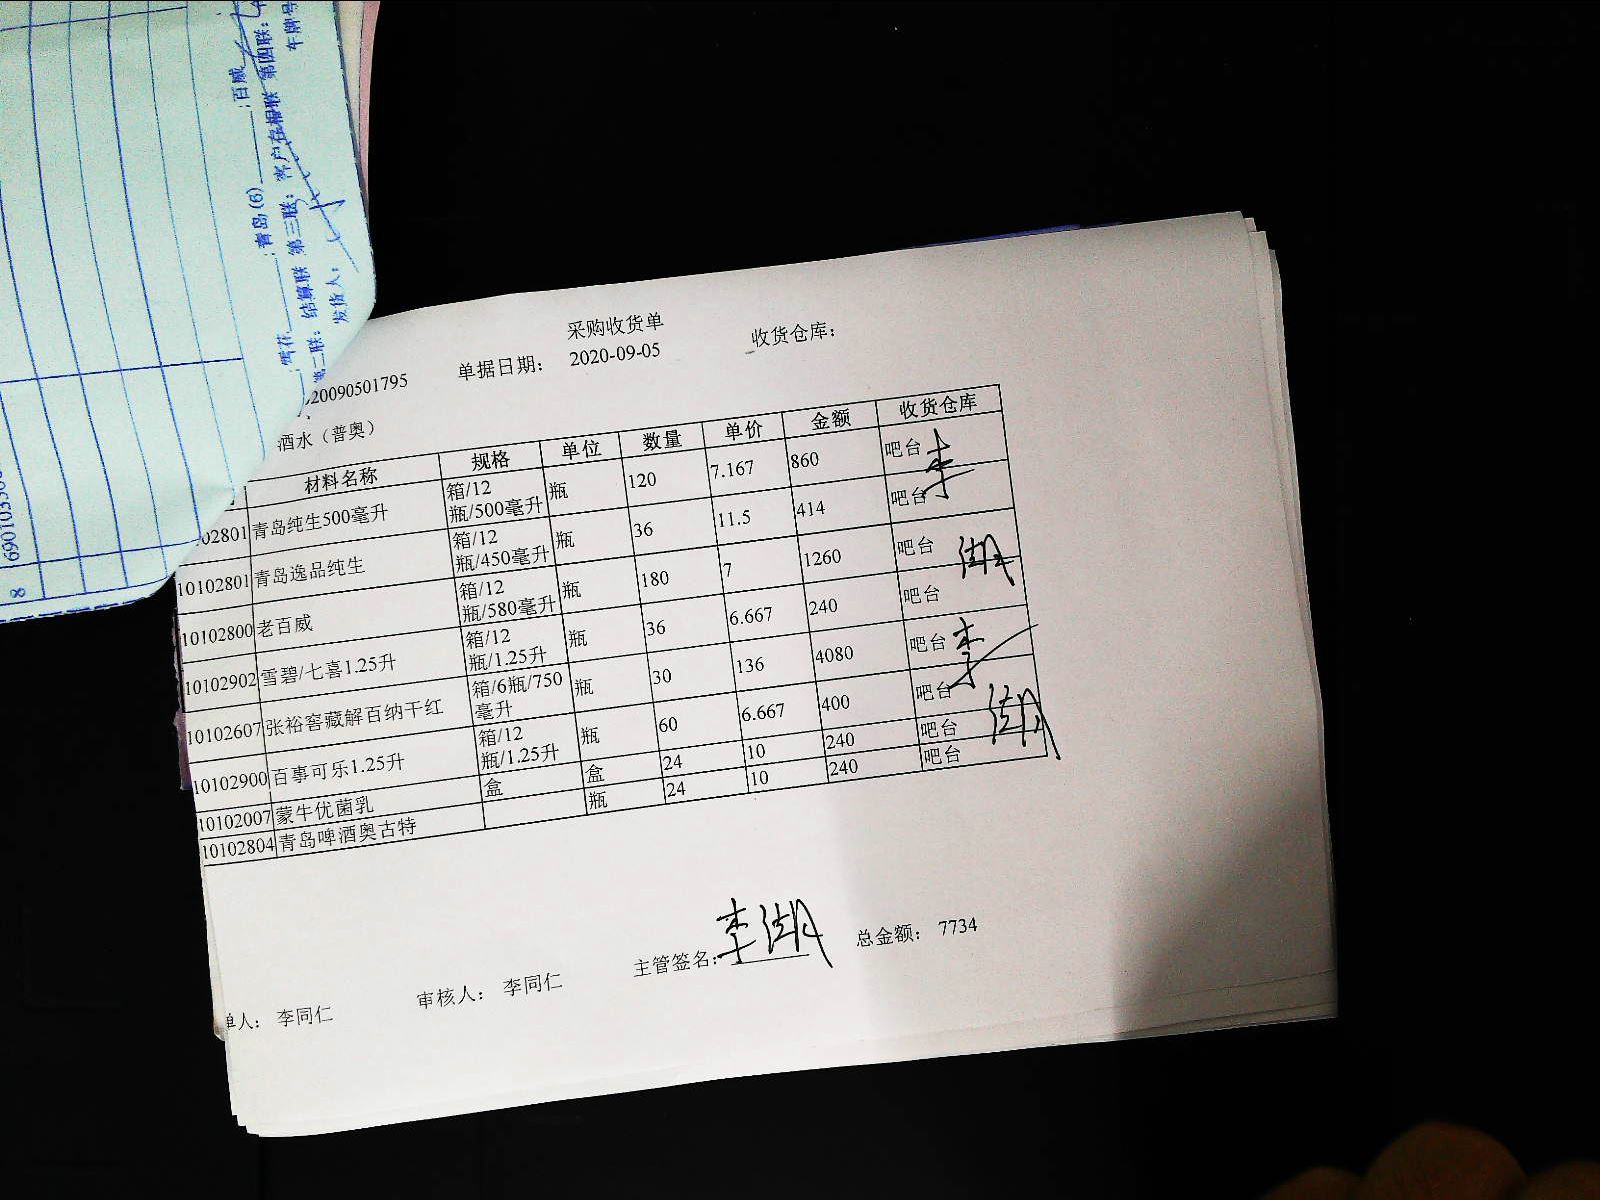 百威
青岛(6)
雪花
第二联：结算联 第三联：客户存根联 第四联：
发货人：
车牌号
8
采购收货单
20090501795 单据日期： 2020-09-05 收货仓库：
酒水（普奥）
材料名称 规格 单位 数量 单价 金额 收货仓库
02801 青岛纯生500毫升 箱/12瓶/500毫升 瓶 120 7.167 860 吧台
10102801 青岛逸品纯生 箱/12瓶/450毫升 瓶 36 11.5 414 吧台
10102800 老百威 箱/12瓶/580毫升 瓶 180 7 1260 吧台
10102902 雪碧/七喜1.25升 箱/12瓶/1.25升 瓶 36 6.667 240 吧台
10102607 张裕窖藏解百纳干红 箱/6瓶/750毫升 瓶 30 136 4080 吧台
10102900 百事可乐1.25升 箱/12瓶/1.25升 瓶 60 6.667 400 吧台
10102007 蒙牛优菌乳 盒 盒 24 10 240 吧台
10102804 青岛啤酒奥古特 瓶 24 10 240 吧台
李湖
李湖
单人： 李同仁 审核人： 李同仁 主管签名： 李湖 总金额： 7734